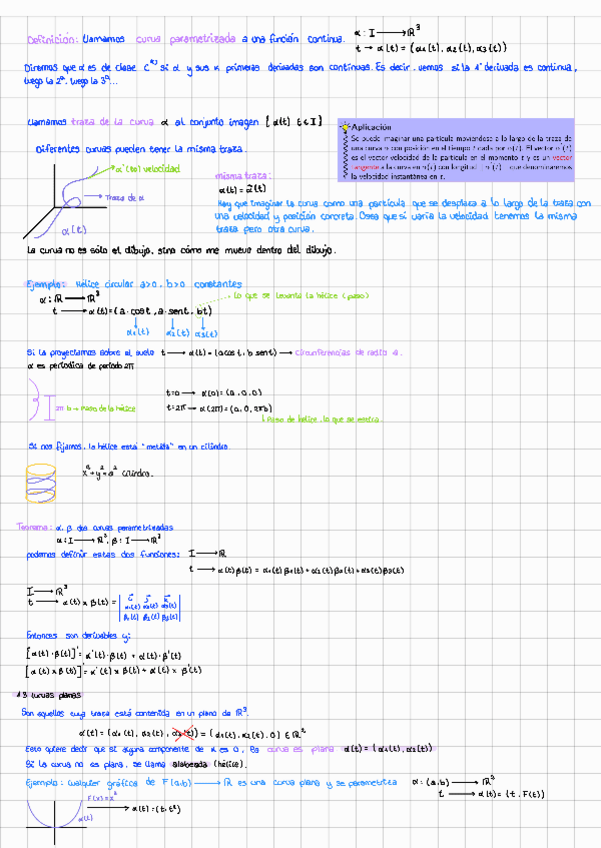 Definición: Llamamos curva parametrizada a una función continua. α: I → R³
t → α(t) = (α1(t), α2(t), α3(t))
Diremos que α es de clase C^k) si α y sus k primeras derivadas son continuas. Es decir, vemos si la 1ª derivada es continua,
luego la 2ª, luego la 3ª...
Llamamos traza de la curva α al conjunto imagen {α(t) t∈I}
Diferentes curvas pueden tener la misma traza.
Aplicación
Se puede imaginar una partícula moviéndose a lo largo de la traza de
una curva α con posición en el tiempo t dada por α(t). El vector α'(t)
es el vector velocidad de la partícula en el momento t y es un vector
tangente a la curva en α(t)
la velocidad instantánea en t.
α'(t0) velocidad
Traza de α
α(t)
misma traza:
Hay que imaginar la curva como una partícula que se desplaza a lo largo de la traza con
una velocidad y posición concreta. Osea que si varía la velocidad tenemos la misma
traza pero otra curva.
La curva no es sólo el dibujo, sino cómo me muevo dentro del dibujo.
Ejemplo: Hélice circular a>0, b>0 constantes
α: R → R³
lo que se levanta la hélice (paso)
t → α(t) = (a·cost, a·sent, bt)
α1(t) α2(t) α3(t)
Si la proyectamos sobre el suelo t → α(t) = (a cos t, b sent) → circunferencias de radio a.
α es periodica de período 2π
2π b → Paso de la hélice
t=0 → α(0) = (a, 0, 0)
t=2π → α(2π) = (a, 0, 2πb)
Paso de hélice, lo que se
Si nos fijamos, la hélice está "metida" en un cilindro
x²+y²=a² cilindro.
Teorema: α, β dos curvas parametrizadas
α: I → R³, β: I → R³
podemos definir estas dos funciones: I → R
t → α(t)β(t) = α1(t)β1(t) + α2(t)β2(t) + α3(t)β3(t)
I → R³
t → α(t) x β(t) = | i j k
α1(t) α2(t) α3(t)
β1(t) β2(t) β3(t) |
Entonces son derivables y:
[α(t)·β(t)]' = α'(t)·β(t) + α(t)·β'(t)
[α(t) x β(t)]' = α'(t) x β(t) + α(t) x β'(t)
1.3 curvas planas
Son aquellas cuya traza está contenida en un plano de R³.
α(t) = (α1(t), α2(t), α3(t)) = (α1(t), α2(t), 0) ∈ R²
Esto quiere decir que si alguna componente de α es 0, es curva es plana α(t) = (α1(t), α2(t))
Si la curva no es plana, se llama alabeada (hélice).
Ejemplo: cualquier gráfica de F(a,b) → R es una curva plana y se parametriza α: (a,b) → R³
t → α(t) = (t, F(t))
F(x)=x²
α(t)
→ α(t) = (t, t²)